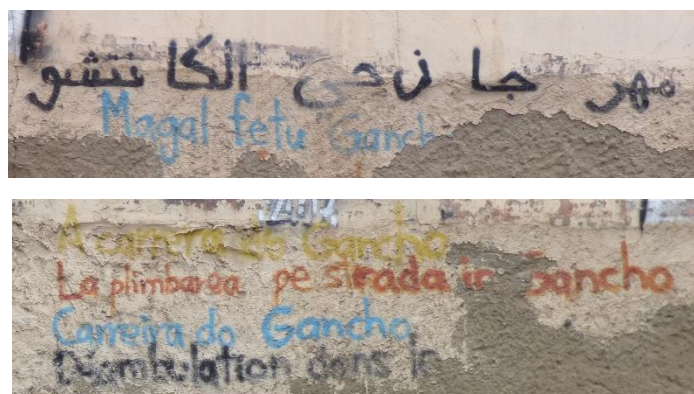 مهر جا ن حي الكانتشو
Magal fetu Ganch
2012
A carrera do Gancho
La plimbarea pe strada in Gancho
Carreira do Gancho
Déambulation dans le